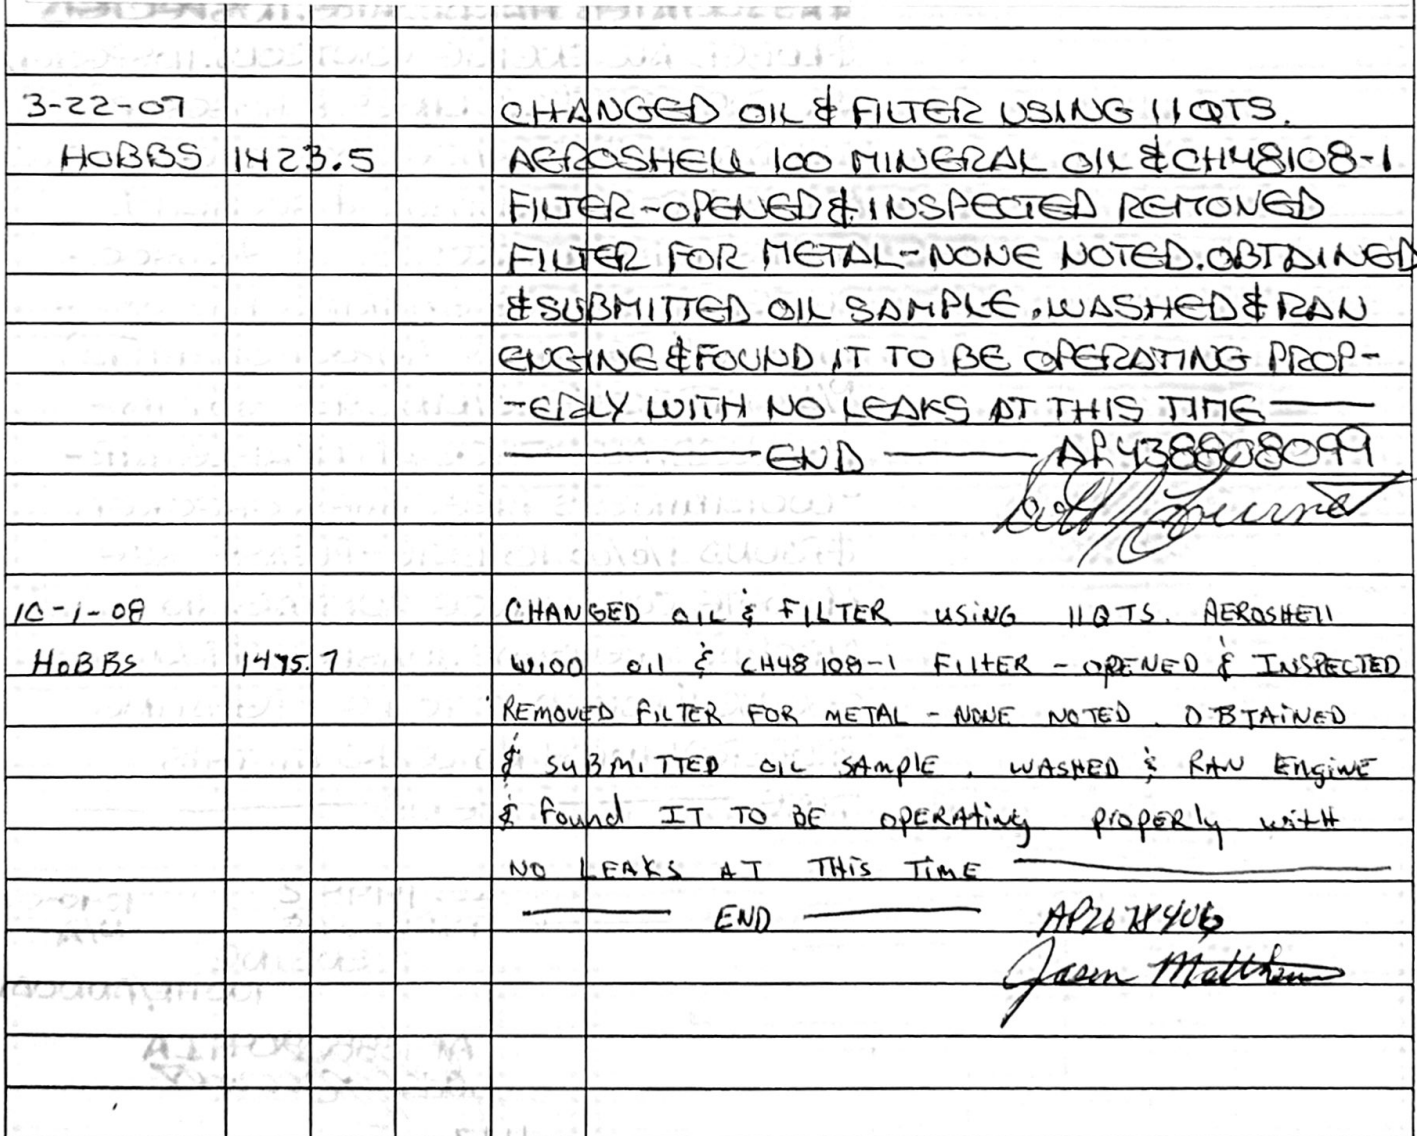 3-22-07 CHANGED OIL & FILTER USING 11 QTS.
HOBBS 1423.5 AEROSHELL 100 MINERAL OIL & CH48108-1
FILTER-OPENED & INSPECTED REMOVED
FILTER FOR METAL-NONE NOTED. OBTAINED
& SUBMITTED OIL SAMPLE. WASHED & RAN
ENGINE & FOUND IT TO BE OPERATING PROP-
-ERLY WITH NO LEAKS AT THIS TIME
END AP438808099
10-1-08 CHANGED OIL & FILTER USING 11 QTS. AEROSHELL
HOBBS 1475.7 W100 OIL & CH48108-1 FILTER - OPENED & INSPECTED
REMOVED FILTER FOR METAL - NONE NOTED. OBTAINED
& SUBMITTED OIL SAMPLE. WASHED & RAN ENGINE
& found IT TO BE OPERATING properly with
NO LEAKS AT THIS TIME
END
Jason Matthews